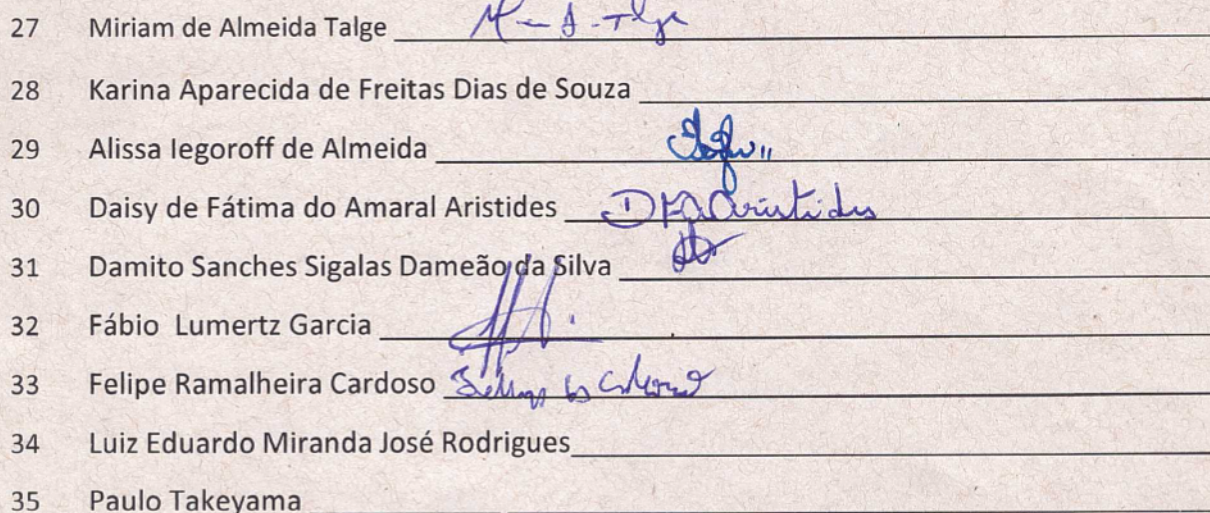 27 Miriam de Almeida Talge
28 Karina Aparecida de Freitas Dias de Souza
29 Alissa Iegoroff de Almeida
30 Daisy de Fátima do Amaral Aristides DFAAristides
31 Damito Sanches Sigalas Dameão da Silva
32 Fábio Lumertz Garcia
33 Felipe Ramalheira Cardoso
34 Luiz Eduardo Miranda José Rodrigues
35 Paulo Takeyama